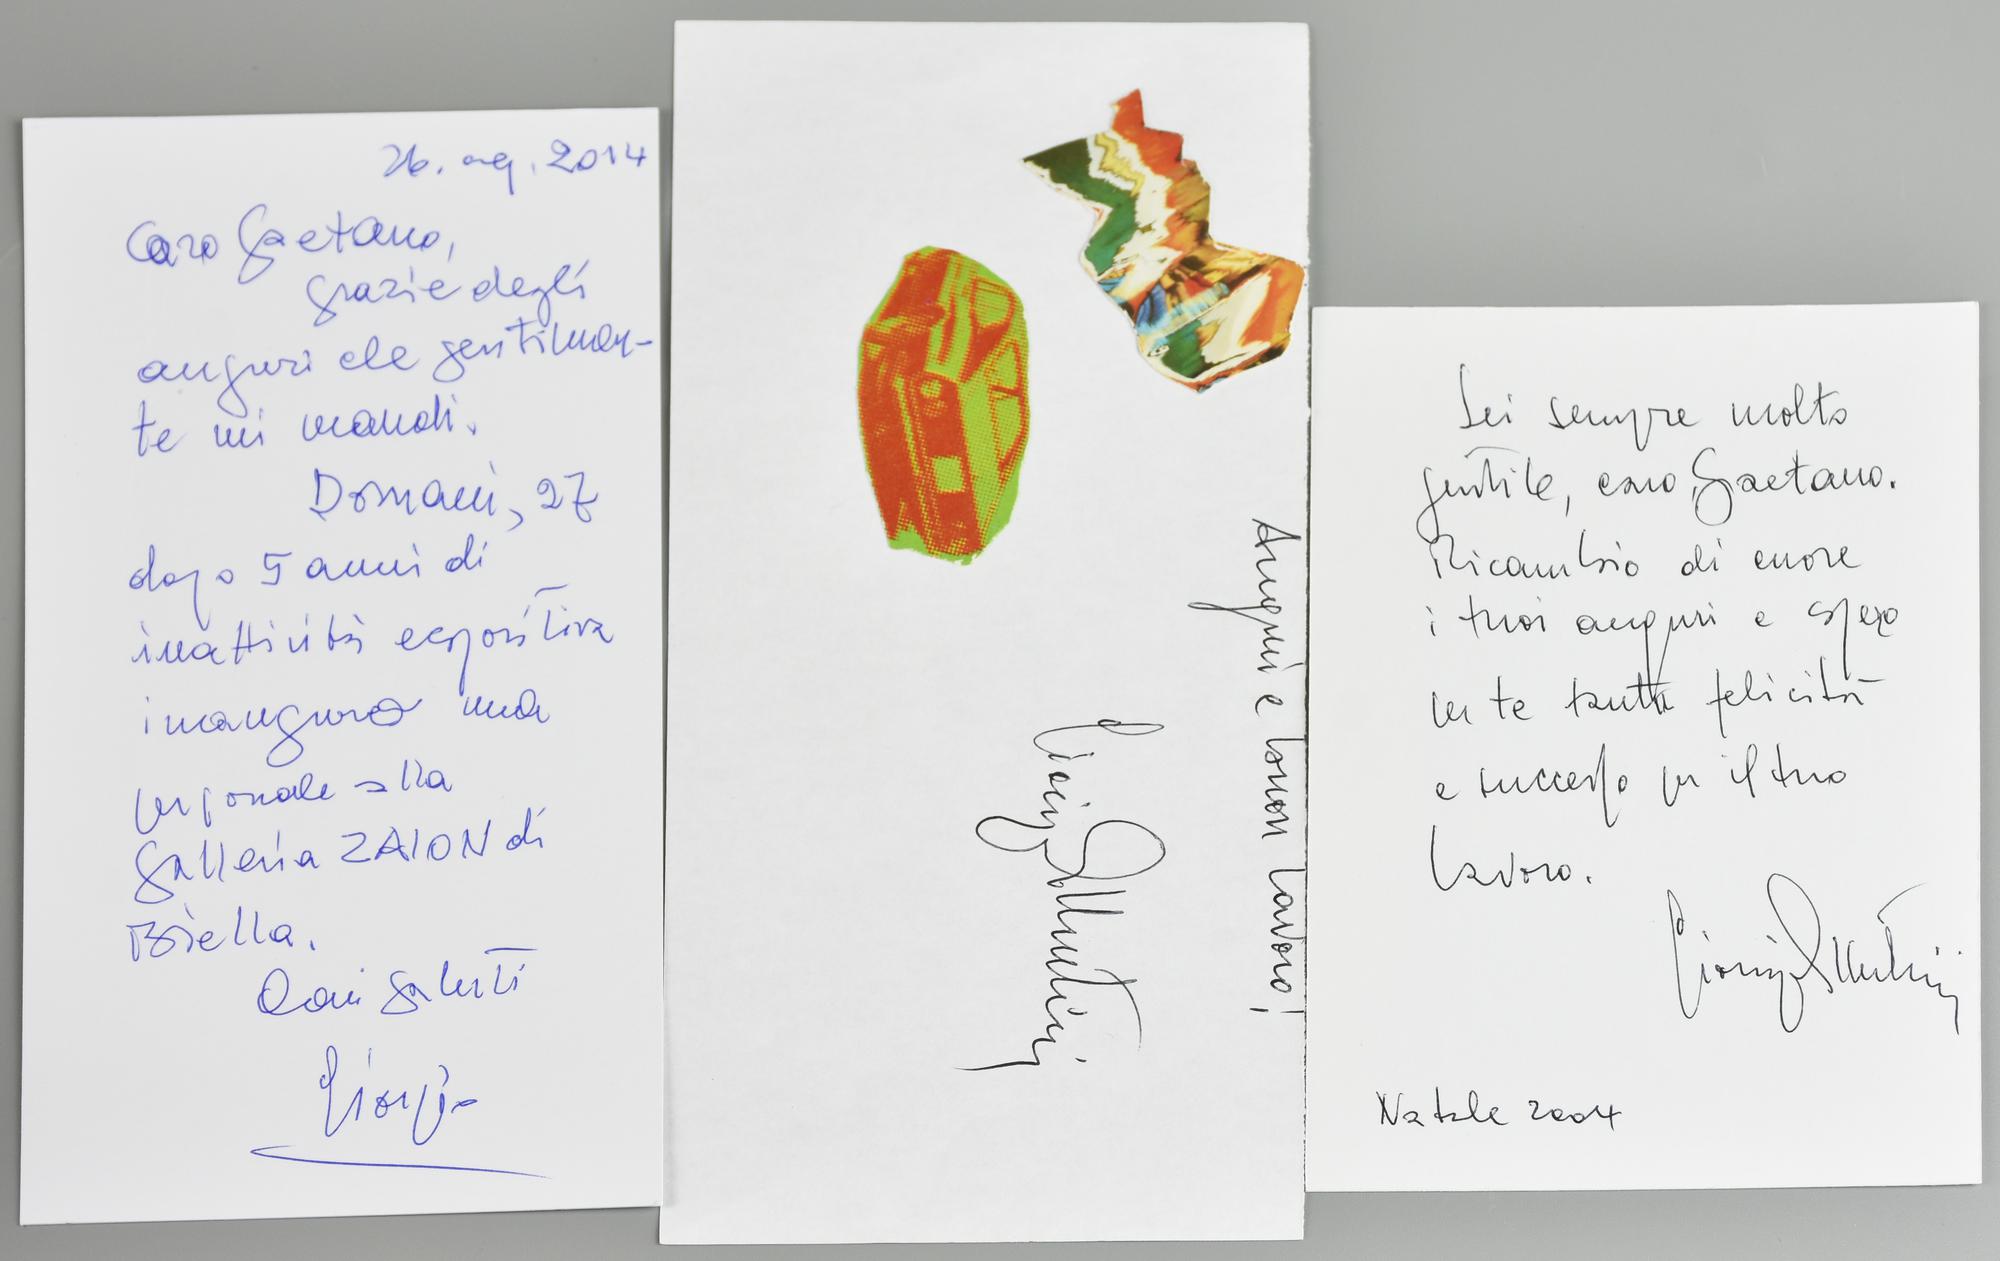 26. ag. 2014
Caro Gaetano,
grazie degli
auguri che gentilmen-
te mi mandi.
Domani, 27
dopo 5 anni di
inattività espositiva
inauguro una
personale alla
Galleria ZAION di
Biella.
Cari saluti
Giorgio
Auguri e buon lavoro!
Sei sempre molto
gentile, caro Gaetano.
Ricambio di cuore
i tuoi auguri e spero
per te tanta felicità
e successo per il tuo
lavoro.
Natale 2004